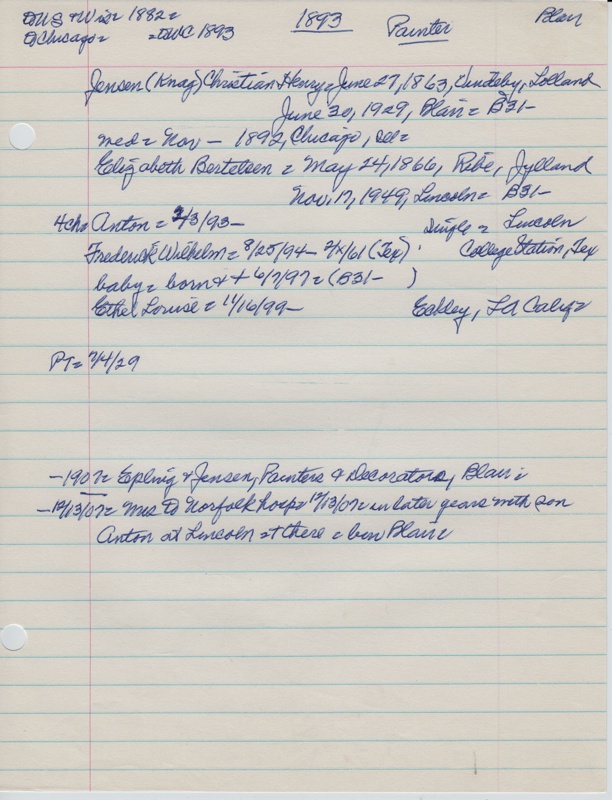 to US & Wis = 1882 =
to Chicago = = to WC 1893
1893
Painter
Blair
Jensen (Knag) Christian Henry = June 27, 1863, Lolland
June 30, 1929, Blair = B31-
med = Nov - 1892, Chicago,
Elizabeth Bertelsen = May 24, 1866, Ribe, Jylland
Nov. 17, 1949, Lincoln = B31-
4 chs Anton = 2/3/93- Single = Lincoln
Frederick Wilhelm = 8/25/94- 2/x/61 (Tex) College Station, Tex
baby = born & + 6/7/97 = (B31- )
Ethel Louise = 11/16/99- Eckley, LA Calif =
PT = 7/4/29
- 1907 = Epling & Jensen, Painters & Decorators, Blair =
- 12/13/07 = Mrs to Norfolk hosp = 12/13/07 = in later years with son
Anton at Lincoln & there = bur Blair =